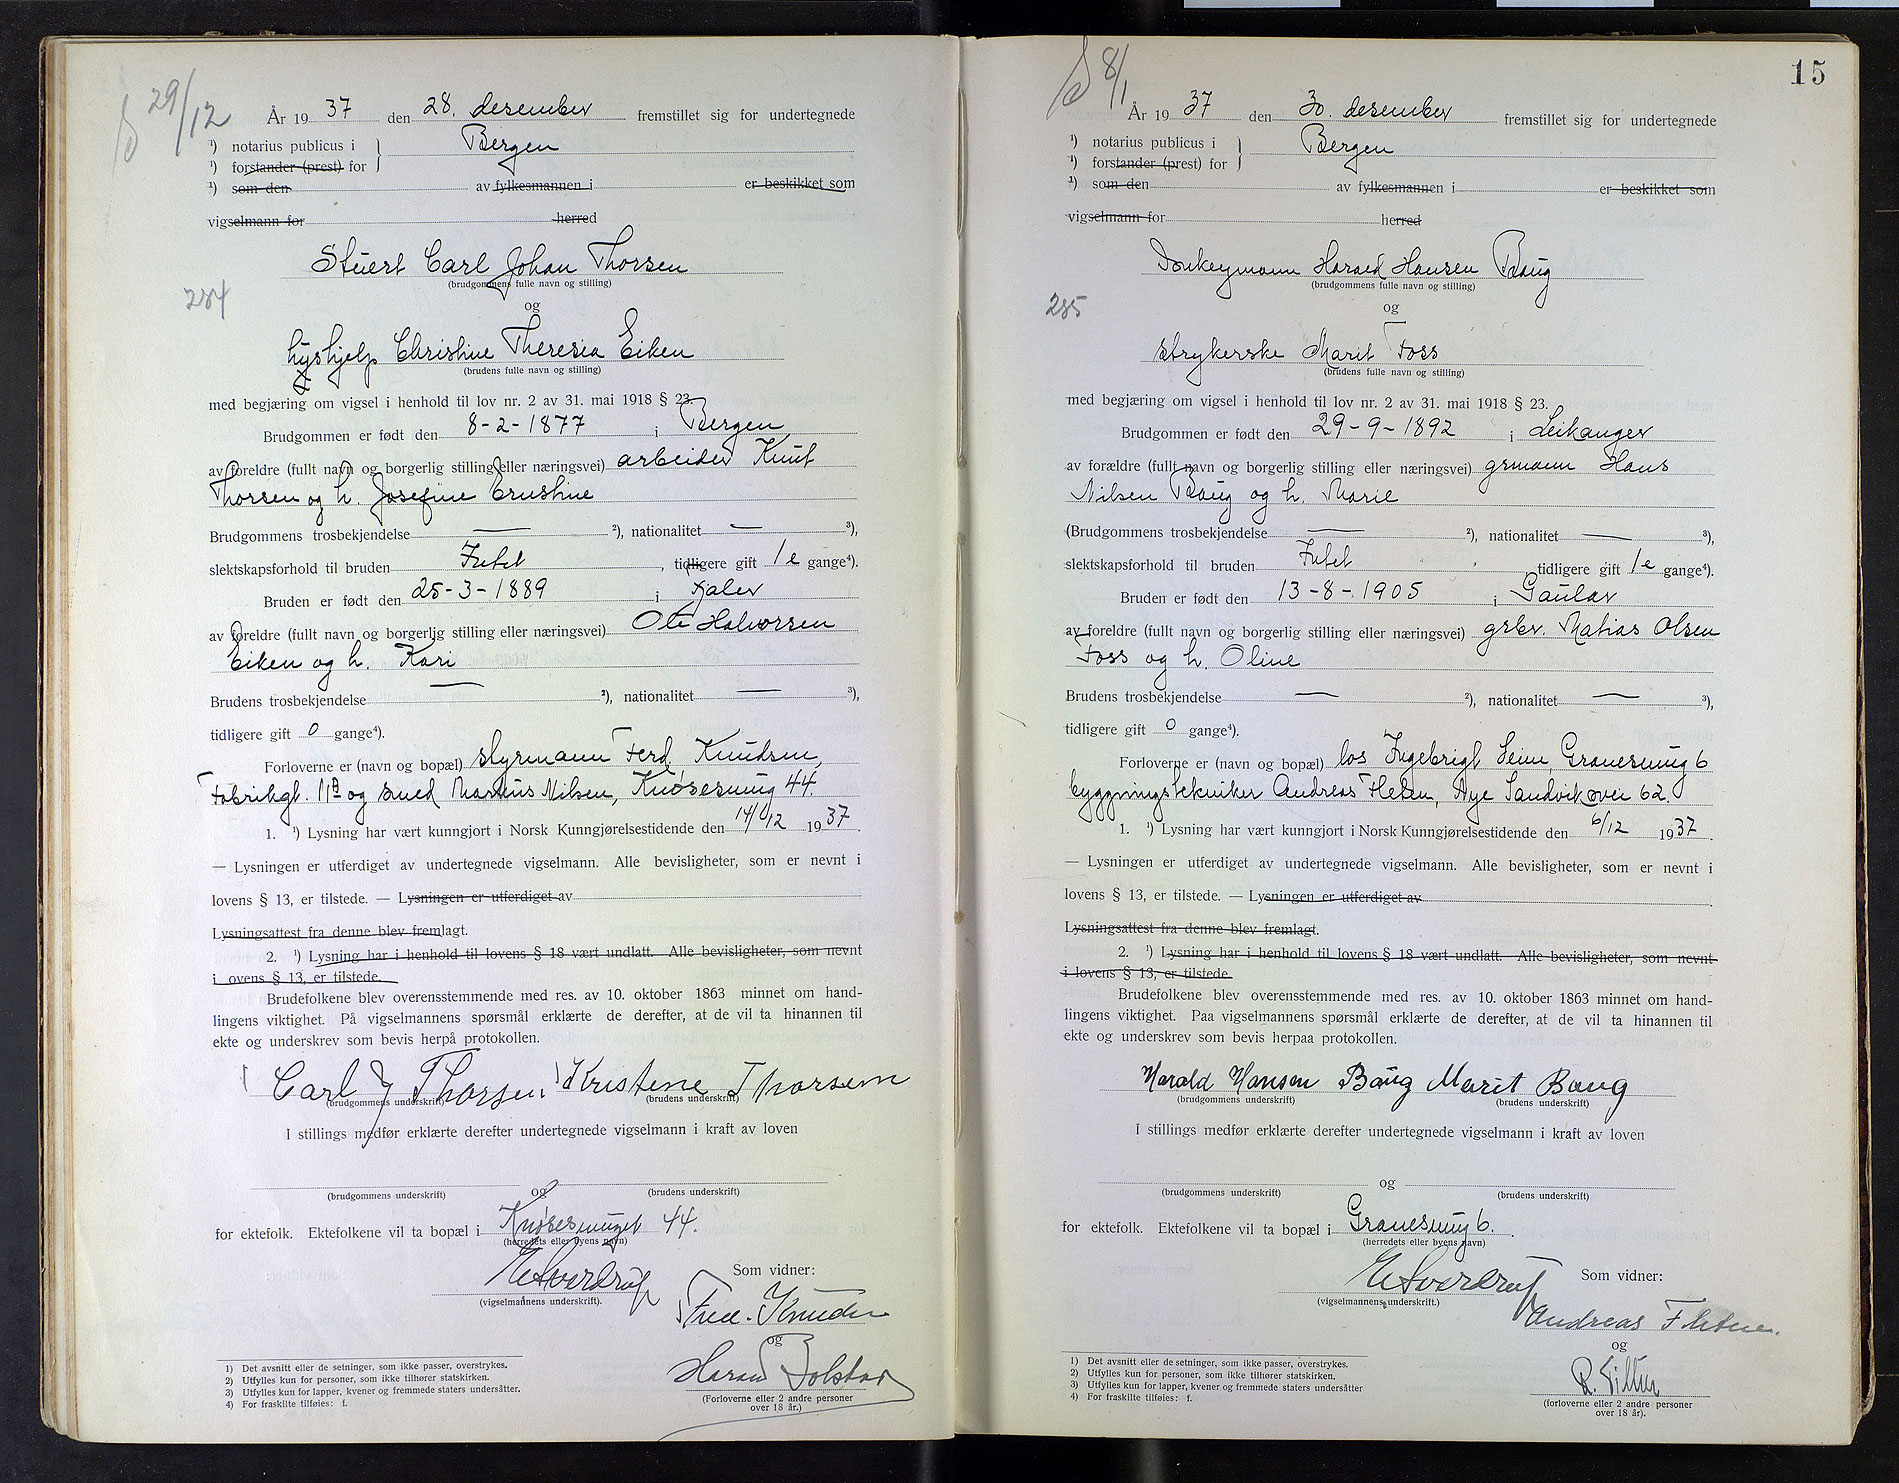 29/12
År 1937 den 28. desember fremstillet sig for undertegnede
¹) notarius publicus i } Bergen
¹) forstander (prest) for
¹) som den av fylkesmannen i er beskikket som
vigselmann for herred
Stuert Carl Johan Thorsen
(brudgommens fulle navn og stilling)
284
og
hushjelp Christine Theresia Eiken
(brudens fulle navn og stilling)
med begjæring om vigsel i henhold til lov nr. 2 av 31. mai 1918 § 23.
Brudgommen er født den 8-2-1877 i Bergen
av foreldre (fullt navn og borgerlig stilling eller næringsvei) arbeider Knut
Thorsen og h. Josefine Ernstine
Brudgommens trosbekjendelse — ²), nationalitet — ³),
slektskapsforhold til bruden Intet, tidligere gift 1 e gange⁴).
Bruden er født den 25-3-1889 i Fjaler
av foreldre (fullt navn og borgerlig stilling eller næringsvei) Ole Halvorsen
Eiken og h. Kari
Brudens trosbekjendelse — ²), nationalitet — ³),
tidligere gift 0 gange⁴).
Forloverne er (navn og bopæl) styrmann Ferd. Knudsen,
Fabrikgt. 11 B og smed Marius Nilsen, Knøsesmug 44.
1. ¹) Lysning har vært kunngjort i Norsk Kunngjørelsestidende den 14/12 1937.
— Lysningen er utferdiget av undertegnede vigselmann. Alle bevisligheter, som er nevnt i
lovens § 13, er tilstede. — Lysningen er utferdiget av
Lysningsattest fra denne blev fremlagt.
2. ¹) Lysning har i henhold til lovens § 18 vært undlatt. Alle bevisligheter, som nevnt
i ovens § 13, er tilstede.
Brudefolkene blev overensstemmende med res. av 10. oktober 1863 minnet om hand-
lingens viktighet. På vigselmannens spørsmål erklærte de derefter, at de vil ta hinannen til
ekte og underskrev som bevis herpå protokollen.
Carl J Thorsen Kristene Thorsen
(brudgommens underskrift) (brudens underskrift)
I stillings medfør erklærte derefter undertegnede vigselmann i kraft av loven
og
(brudgommens underskrift) (brudens underskrift)
for ektefolk. Ektefolkene vil ta bopæl i Knøsesmuget 44.
(herredets eller byens navn)
E Sverdrup
Som vidner:
(vigselmannens underskrift).
Fred. Knudsen
og
Harald Bolstad
(Forloverne eller 2 andre personer
over 18 år.)
1) Det avsnitt eller de setninger, som ikke passer, overstrykes.
2) Utfylles kun for personer, som ikke tilhører statskirken.
3) Utfylles kun for lapper, kvener og fremmede staters undersåtter.
4) For fraskilte tilføies: f.
15
8/1
År 1937 den 30. desember fremstillet sig for undertegnede
¹) notarius publicus i } Bergen
¹) forstander (prest) for
¹) som den av fylkesmannen i er beskikket som
vigselmann for herred
Donkeymann Harald Hansen Baug
(brudgommens fulle navn og stilling)
285
og
strykerske Marit Foss
(brudens fulle navn og stilling)
med begjæring om vigsel i henhold til lov nr. 2 av 31. mai 1918 § 23.
Brudgommen er født den 29-9-1892 i Leikanger
av forældre (fullt navn og borgerlig stilling eller næringsvei) grmann Hans
Nilsen Baug og h. Marie
(Brudgommens trosbekjendelse — ²), nationalitet — ³),
slektskapsforhold til bruden Intet, tidligere gift 1 e gange⁴).
Bruden er født den 13-8-1905 i Gaular
av foreldre (fullt navn og borgerlig stilling eller næringsvei) grbr. Matias Olsen
Foss og h. Oline
Brudens trosbekjendelse — ²), nationalitet — ³),
tidligere gift 0 gange⁴).
Forloverne er (navn og bopæl) los Ingebrigt Seim Granesmug 6
byggningstekniker Andreas Fleten, Nye Sandviksvei 62.
1. ¹) Lysning har vært kunngjort i Norsk Kunngjørelsestidende den 6/12 1937.
— Lysningen er utferdiget av undertegnede vigselmann. Alle bevisligheter, som er nevnt i
lovens § 13, er tilstede. — Lysningen er utferdiget av
Lysningsattest fra denne blev fremlagt.
2. ¹) Lysning har i henhold til lovens § 18 vært undlatt. Alle bevisligheter, som nevnt
i lovens § 13, er tilstede.
Brudefolkene blev overensstemmende med res. av 10. oktober 1863 minnet om hand-
lingens viktighet. Paa vigselmannens spørsmål erklærte de derefter, at de vil ta hinannen til
ekte og underskrev som bevis herpaa protokollen.
Harald Hansen Baug Marit Baug
(brudgommens underskrift) (brudens underskrift)
I stillings medfør erklærte derefter undertegnede vigselmann i kraft av loven
og
(brudgommens underskrift) (brudens underskrift)
for ektefolk. Ektefolkene vil ta bopæl i Granesmug 6.
(herredets eller byens navn)
E Sverdrup
Som vidner:
(vigselmannens underskrift.)
Andreas Fleten.
og
(forloverne eller 2 andre personer
over 18 år).
1) Det avsnitt eller de setninger, som ikke passer, overstrykes.
2) Utfylles kun for personer, som ikke tilhører statskirken.
3) Utfylles kun for lapper, kvener og fremmede staters undersåtter
4) For fraskilte tilføies: f.